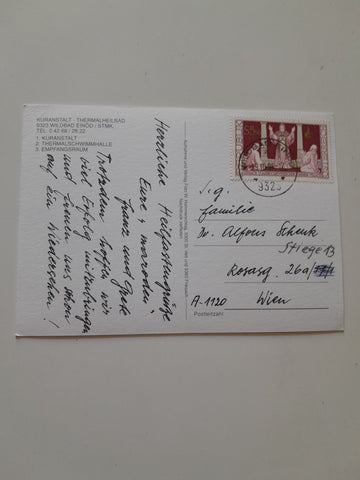 KURANSTALT - THERMALHEILBAD
9323 WILDBAD EINÖD / STMK.
TEL. 0 42 68 / 28 22
1. KURANSTALT
2. THERMALSCHWIMMHALLE
3. EMPFANGSRAUM
Herrliche Heilfastengrüße
Eure "maroden"
Franz und Grete
Trotzdem hoffen wir
viel Erfolg mitzubringen
und freuen uns schon
auf ein Wiedersehen!
9323
S.g.
Familie
Dr. Alfons Schenk
Stiege 13
Rosasg. 26a/
A-1120 Wien
Postleitzahl